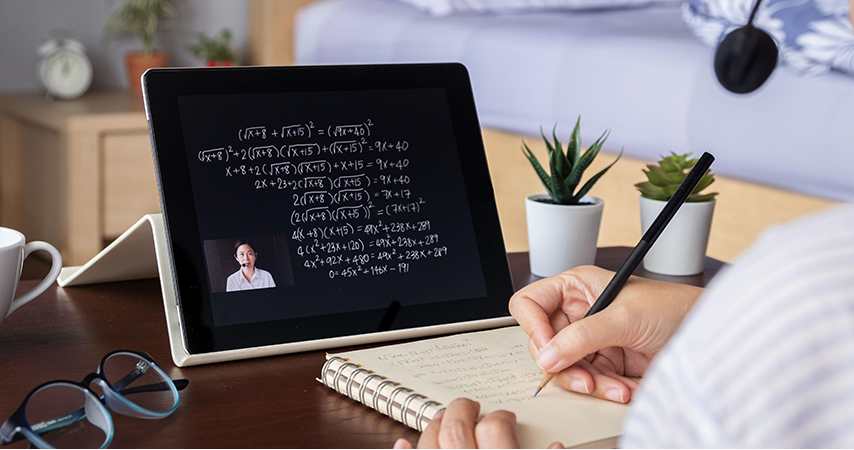 (√x+8 + √x+15)² = (√9x+40)²
(√x+8)²+2(√x+8)(√x+15)+(√x+15)² = 9x+40
x+8+2(√x+8)(√x+15)+x+15 = 9x+40
2x+23+2(√x+8)(√x+15) = 9x+40
2(√x+8)(√x+15) = 7x+17
(2(√x+8)(√x+15))² = (7x+17)²
4(x+8)(x+15) = 49x²+238x+289
4(x²+23x+120) = 49x²+238x+289
4x²+92x+480 = 49x²+238x+289
0=45x²+146x-191